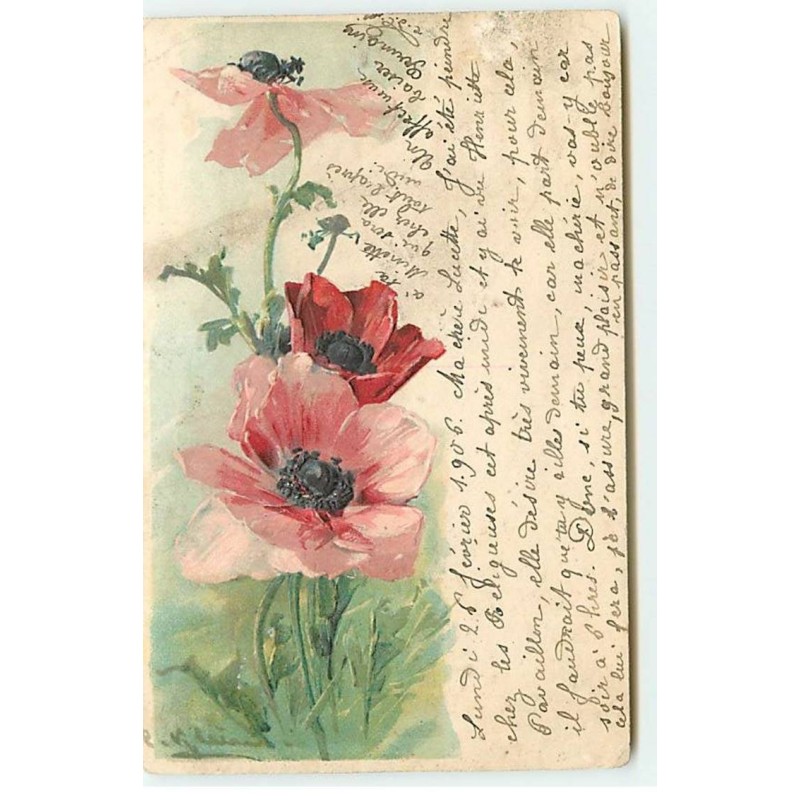 Lundi 26 février 1906. Ma chère Lucette, J'ai été prendre
chez les Religieuses cet après midi et y ai vu Henriette
Pavaillon, elle désire très vivement te voir, pour cela,
il faudrait que tu y ailles demain, car elle part demain
soir à 6 hres. Donc, si tu peux, ma chérie, vas-y car
cela lui fera, je t'assure, grand plaisir et n'oublie pas
en passant, de dire bonjour
à ta
Ninette
qui sera
chez elle
tout l'après
midi
Un
affectueux
baiser
Germaine
C. Klein